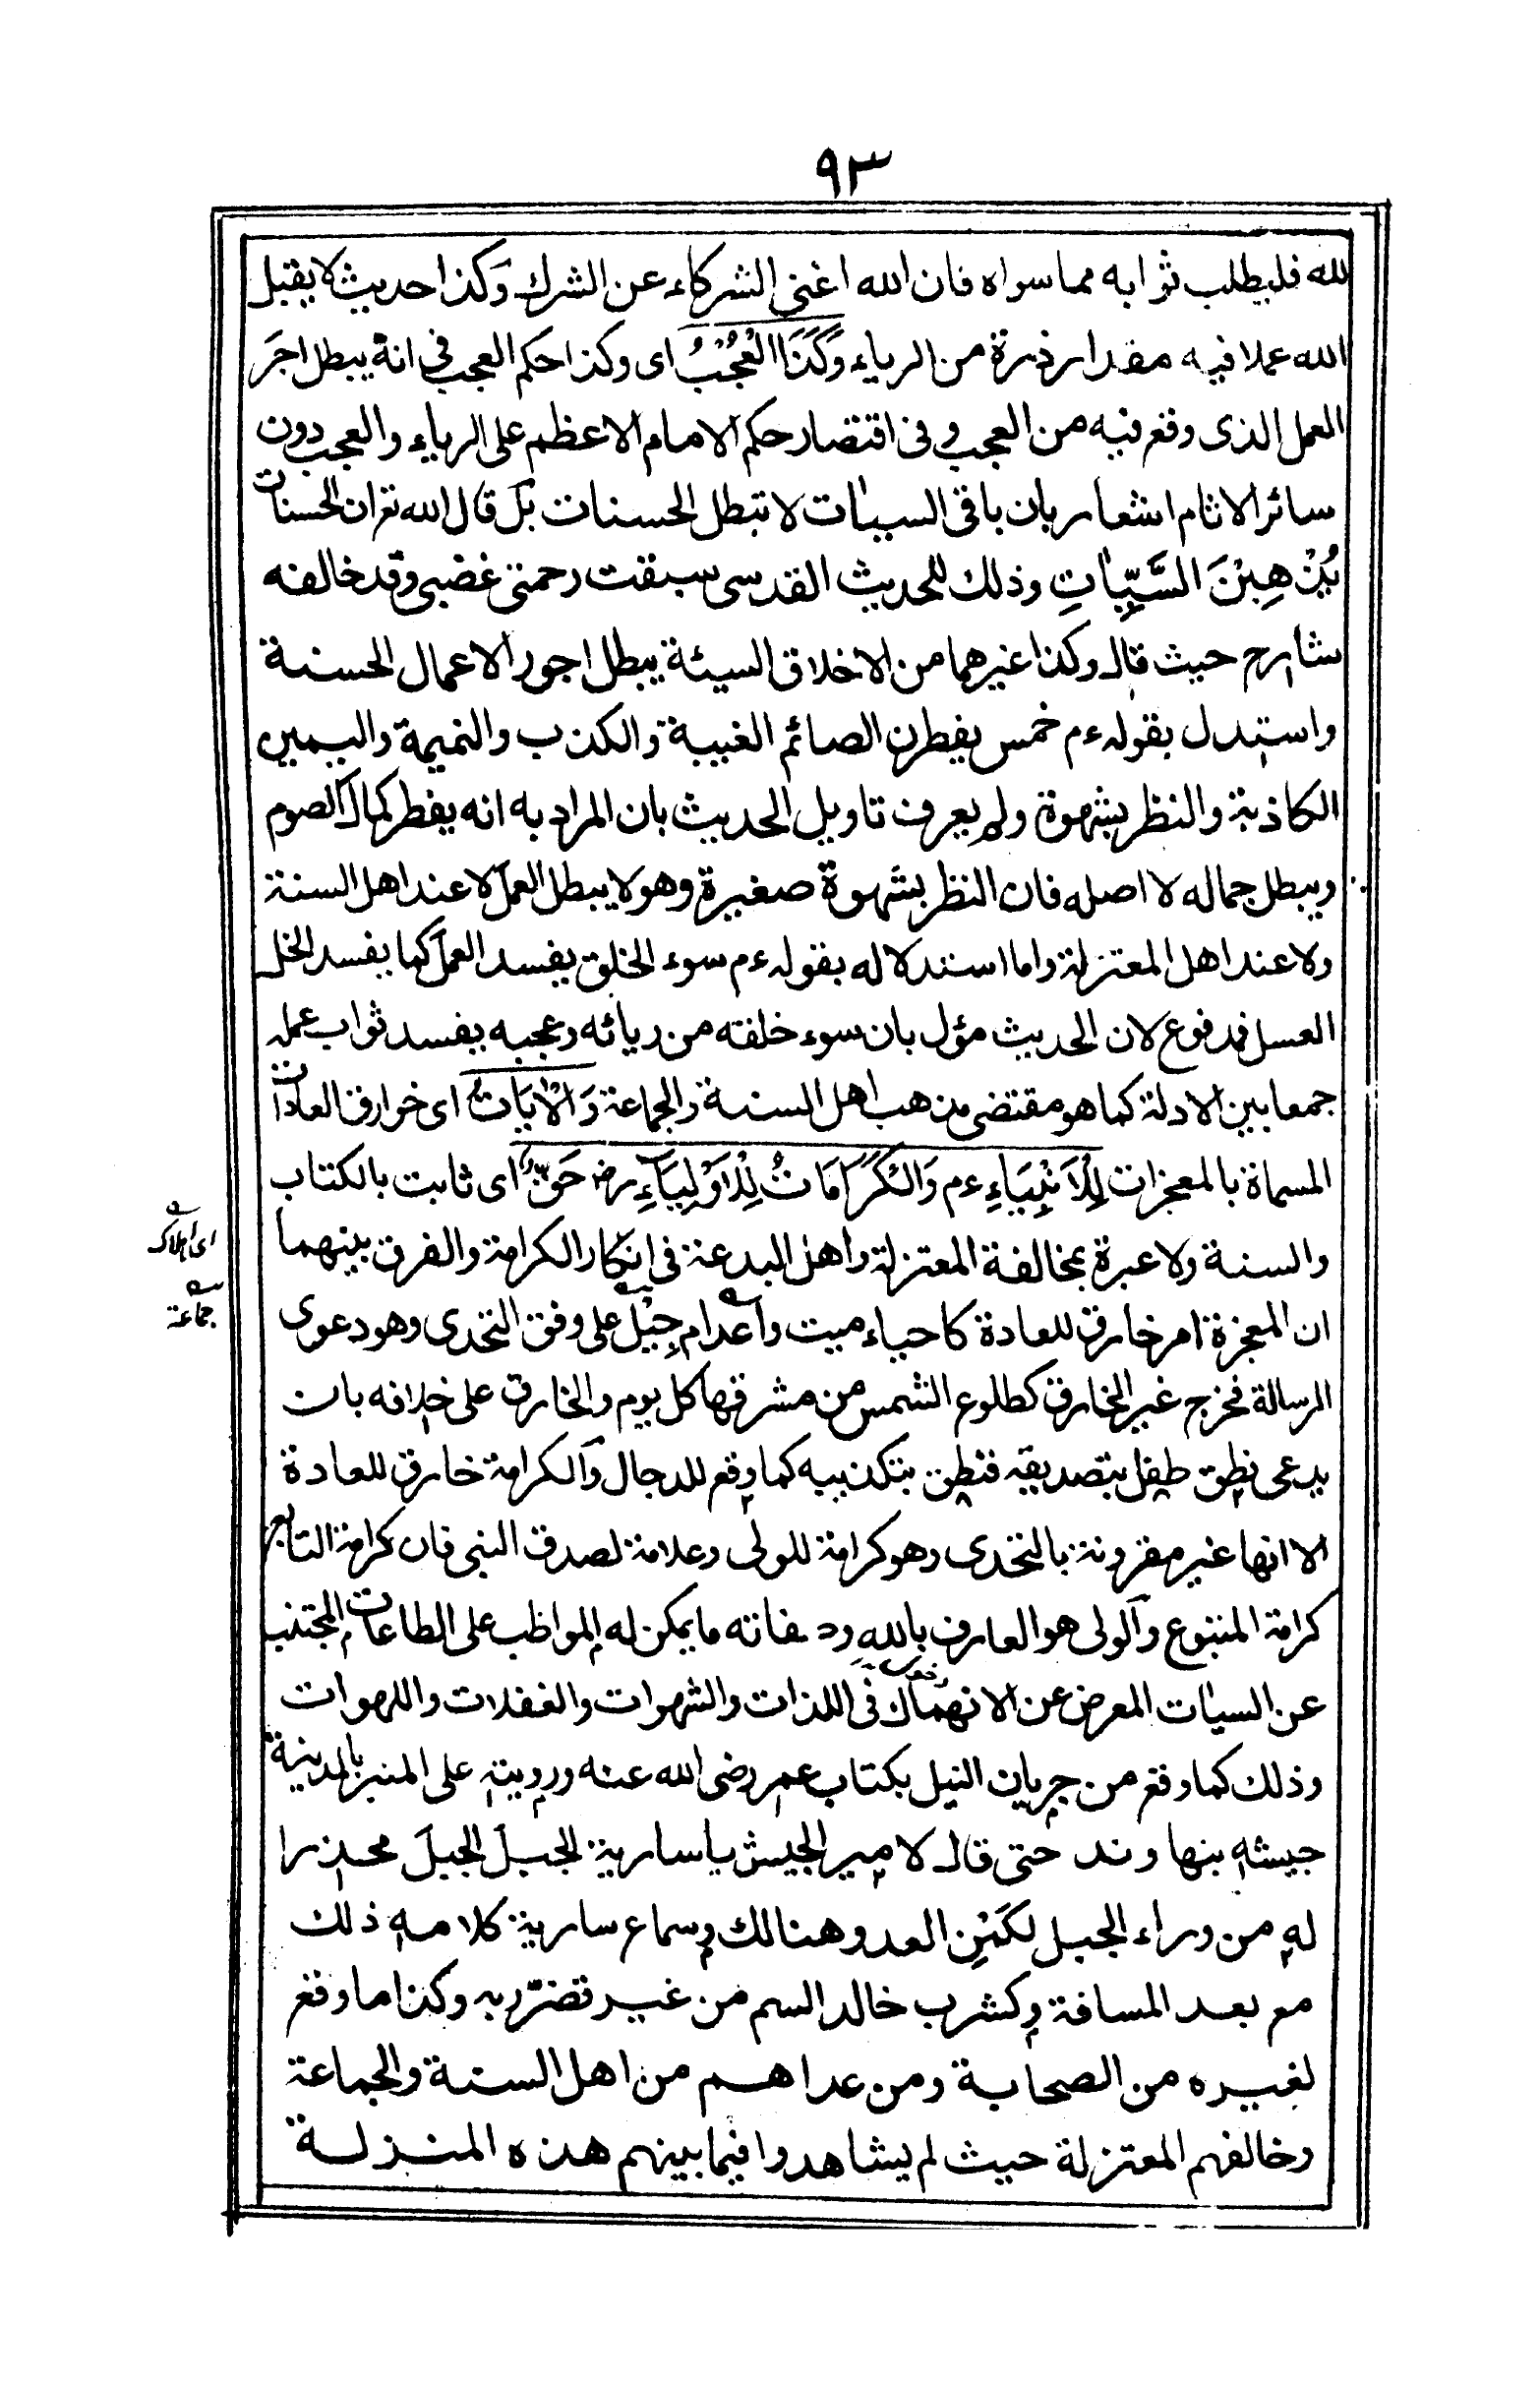 ٩٣
لله فليطلب ثوابه مما سواه فان الله اغنى الشركاء عن الشرك وكذا حديث لا يقبل
الله عملا فيه مقدار ذرة من الرياء وَكَذَا الْعُجْبُ اى وكذا حكم العجب فى انه يبطل اجر
العمل الذى وقع فيه من العجب وفى اقتصار حكم الامام الاعظم على الرياء والعجب دون
سائر الاثام اشعار بان باقى السيات لا تبطل الحسنات بل قال الله تع ان الحسنات
يُذْهِبْنَ السَّيِّاتِ وذلك للحديث القدسى سبقت رحمتى غضبى وقد خالفه
شارح حيث قال وكذا غيرهما من الاخلاق السيئة يبطل اجور الاعمال الحسنة
واستدل بقوله ءم خمس يفطرن الصائم الغيبة والكذب والنميمة واليمين
الكاذبة والنظر بشهوة ولم يعرف تاويل الحديث بان المراد به انه يفطر كمال الصوم
ويبطل جماله لا اصله فان النظر بشهوة صغيرة وهو لا يبطل العمل لا عند اهل السنة
ولا عند اهل المعتزلة واما استدلاله بقوله ءم سوء الخلق يفسد العمل كما يفسد الخل
العسل فمدفوع لان الحديث مؤل بان سوء خلقه من ريائه وعجبه يفسد ثواب عمله
جمعا بين الادلة كما هو مقتضى مذهب اهل السنة والجماعة وَالْايَاتُ اى خوارق العادات
المسماة بالمعجزات لِلْاَنْبِيَاءِ ءم وَالْكَرَامَاتُ لِلْاَوْلِيَاءِ رض حَقٌّ اى ثابت بالكتاب
والسنة ولا عبرة بمخالفة المعتزلة واهل البدعة فى انكار الكرامة والفرق بينهما
اى اهلاك
ان المعجزة امر خارق للعادة كاحياء ميت واعدام جِبْل على وفق التحدى وهو دعوى
جماعة
الرسالة فخرج غير الخارق كطلوع الشمس من مشرقها كل يوم والخارق على خلافه بان
يدعى نطق طفل بتصديقه فنطق بتكذيبه كما وقع للدجال والكرامة خارق للعادة
الا انها غير مقرونة بالتحدى وهو كرامة للولى وعلامة لصدق النبى فان كرامة التابع
كرامة المتبوع والولى هو العارف بالله وصفاته ما يمكن له المواظب على الطاعات المجتنب
عن السيات المعرض عن الانهماك فى اللذات والشهوات والغفلات واللهوات
وذلك كما وقع من جريان النيل بكتاب عمر رضى الله عنه ورويته على المنبر بالمدينة
جيشه بنهاوند حتى قال لامير الجيش يا سارية الجبل الجبل محذرا
له من وراء الجبل لكَمَنِ العدو هنالك وسماع سارية كلامه ذلك
مع بعد المسافة وكشرب خالد السم من غير تضرر به وكذا ما وقع
لغيره من الصحابة ومن عداهم من اهل السنة والجماعة
وخالفهم المعتزلة حيث لم يشاهدوا فيما بينهم هذه المنزلة